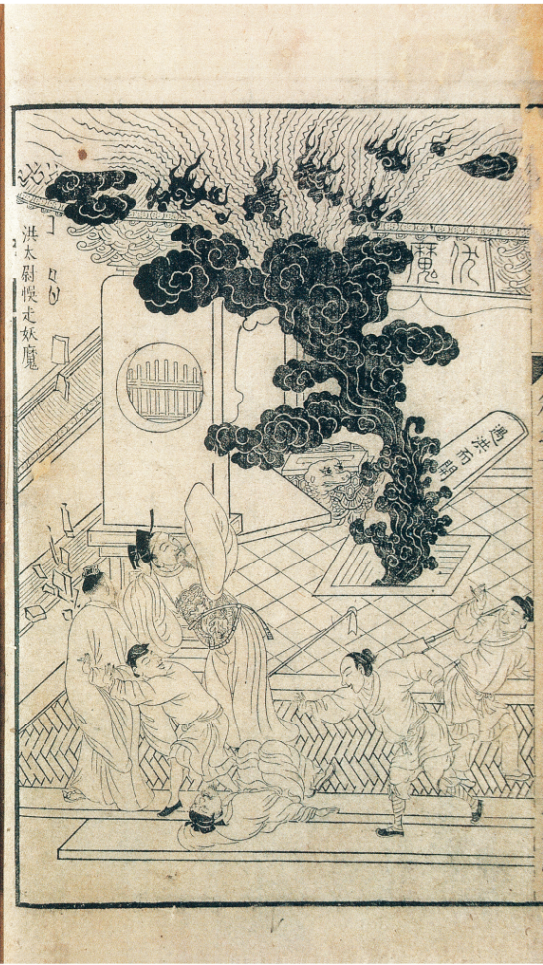 伏魔
遇洪而開
洪太尉悞走妖魔